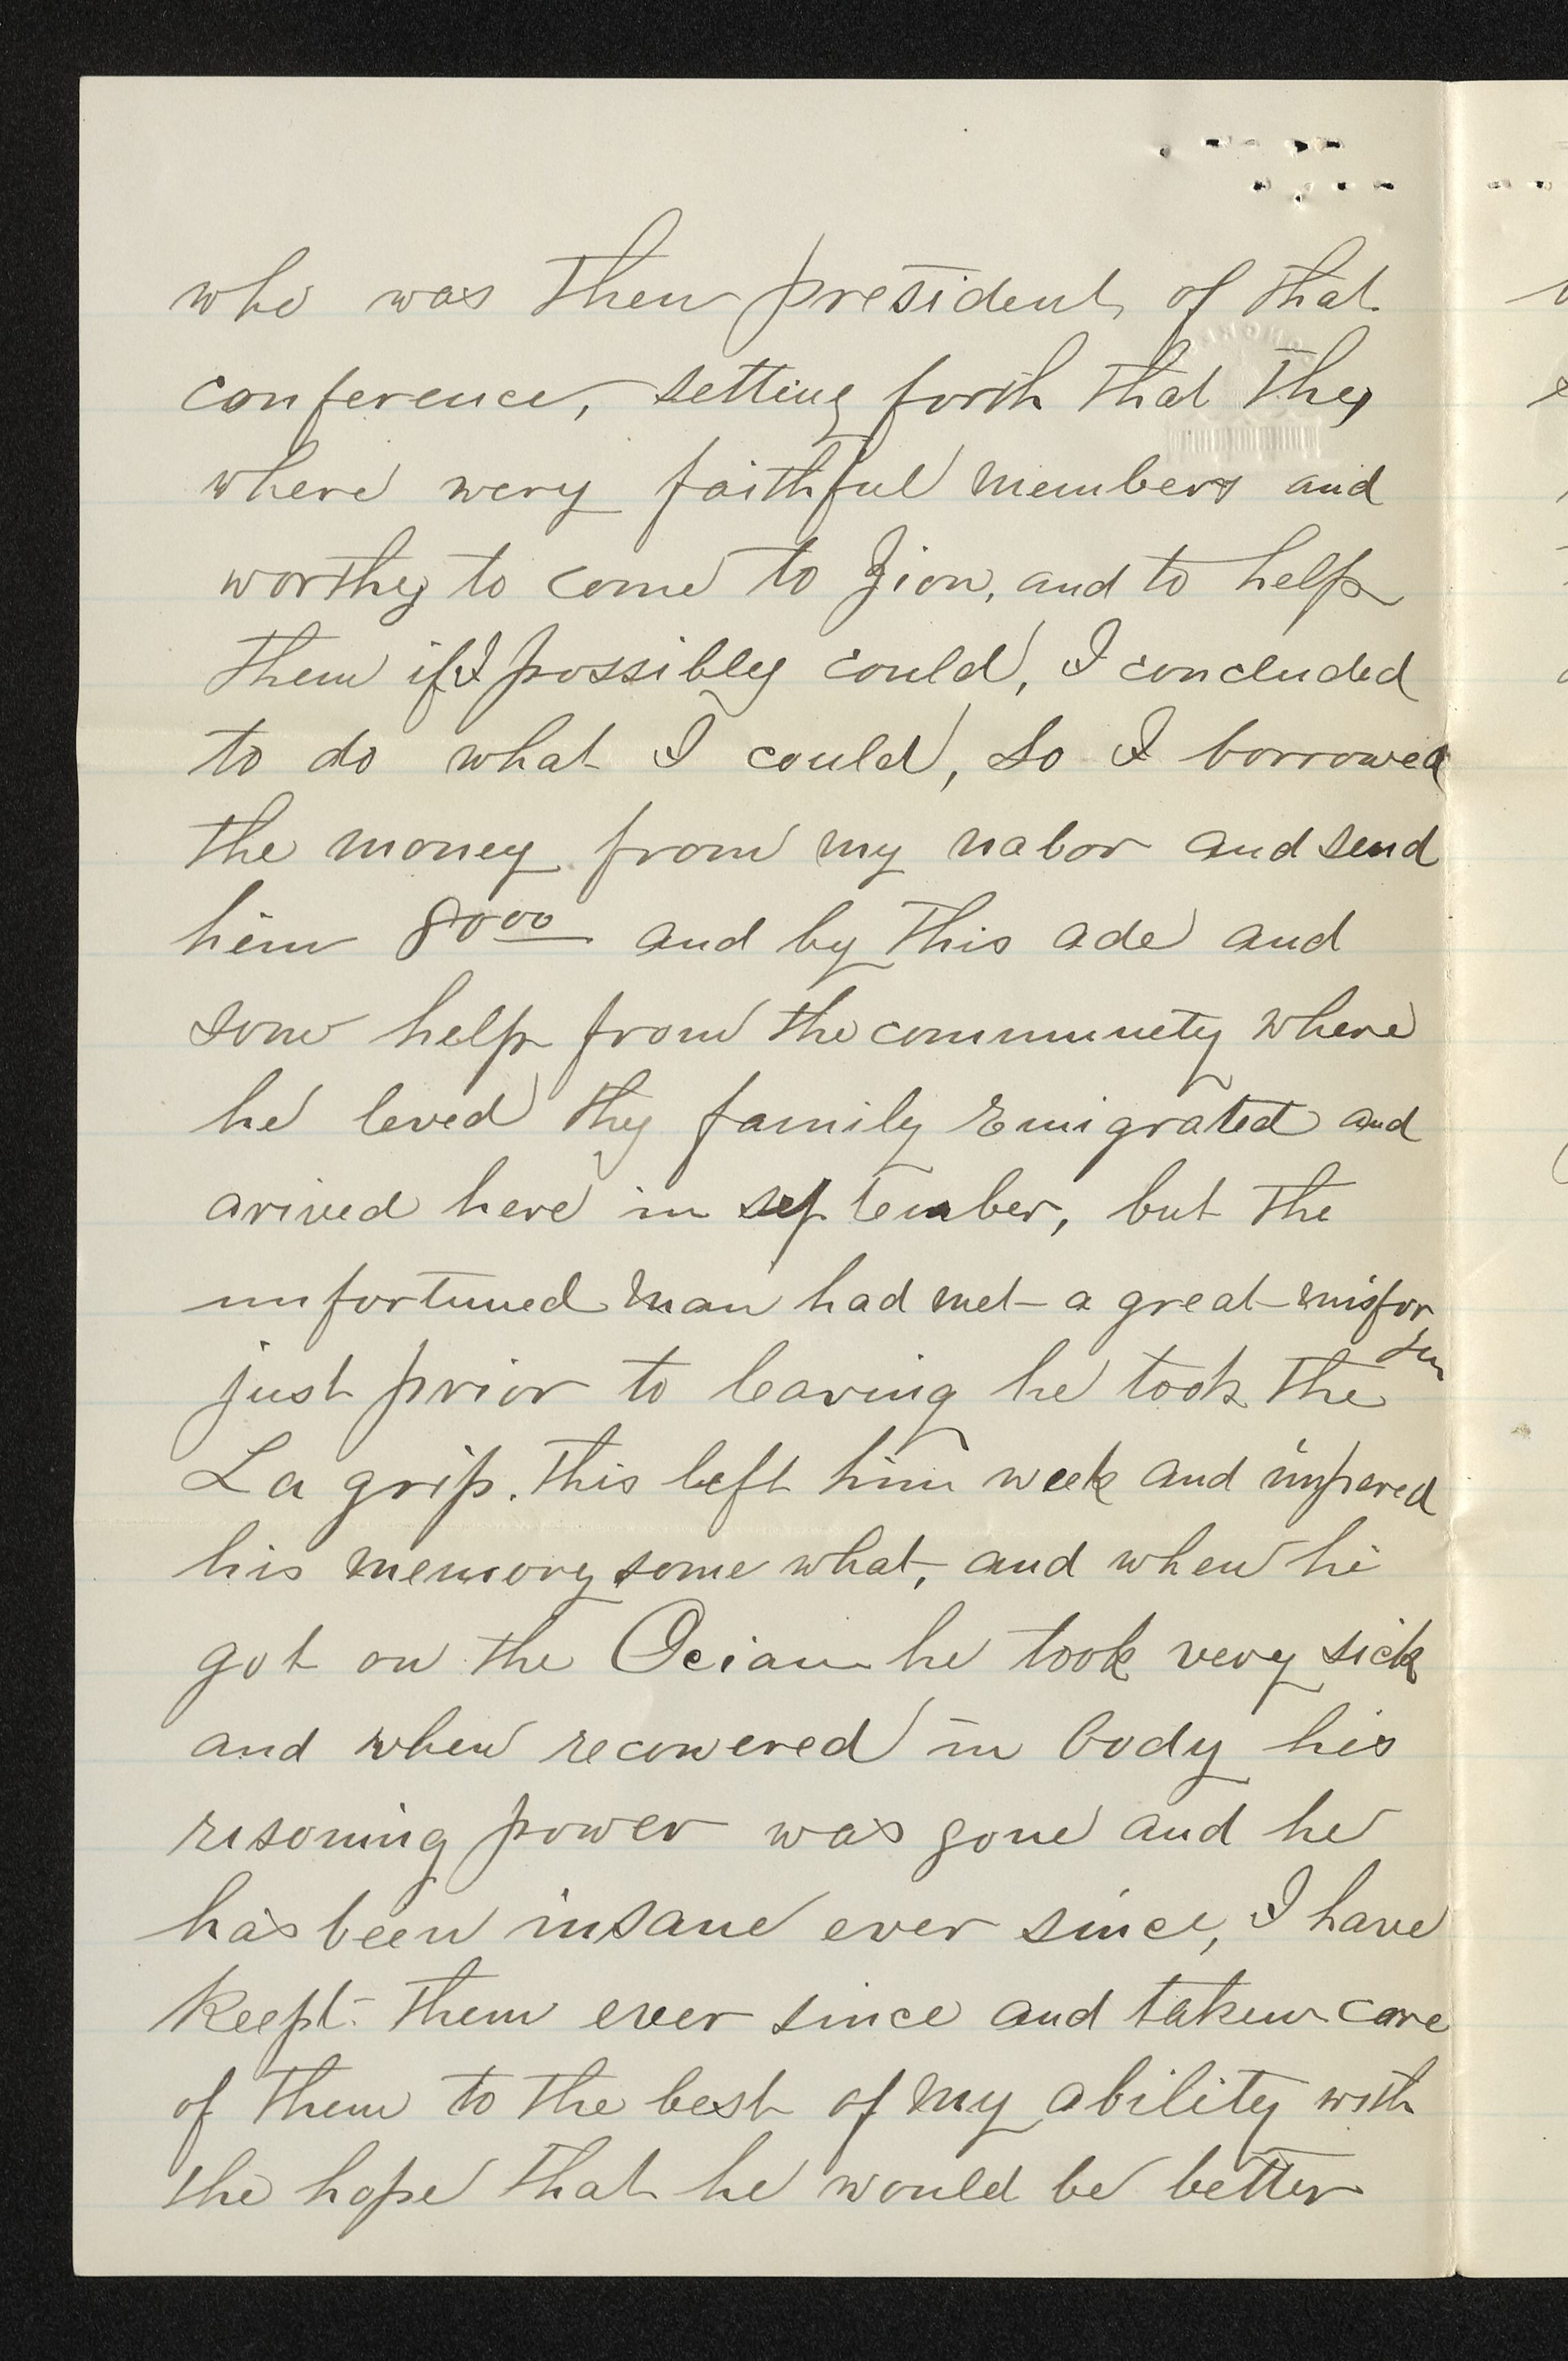 who was then president of that
conference, setting forth that they
where wery faithful members and
worthy to come to Zion, and to help
them if I possibly could, I concluded
to do what I could, So I borrowed
the money from my nabor and send
him 80 00 and by this ade and
som help from the communety where
he leved thy family Emigrated and
arived here in september, but the
unfortuned man had met a great misfor
tun
just prior to leaving he took the
La grip. this left him week and impared
his memory some what, and when he
got on the Ocian he took very sick
and when recowered in body his
resoning power was gone and he
has been insane ever since, I have
Keept them ever since and taken care
of them to the best of my ability with
the hope that he would be better